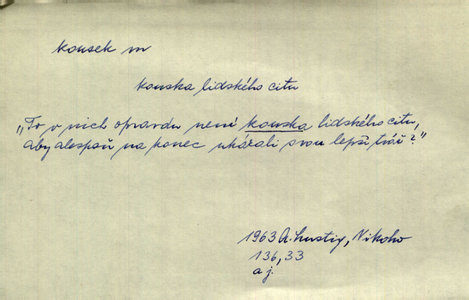 kousek m
kouska lidského citu
„To v nich opravdu není kouska lidského citu,
aby alespoň na konec ukázali svou lepší tvář?"
1963 A. Lustig, Nikoho
136, 33
a j.